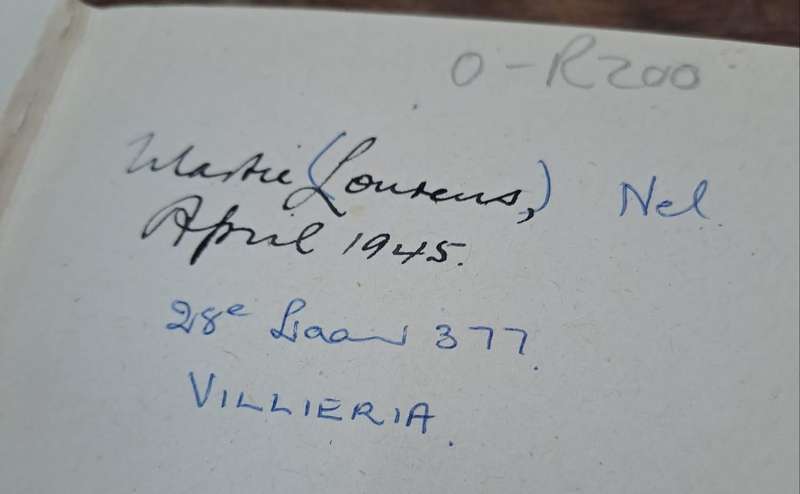 O - R200
Martie (Lourens,) Nel.
April 1945.
28e Laan 377.
VILLIERIA.